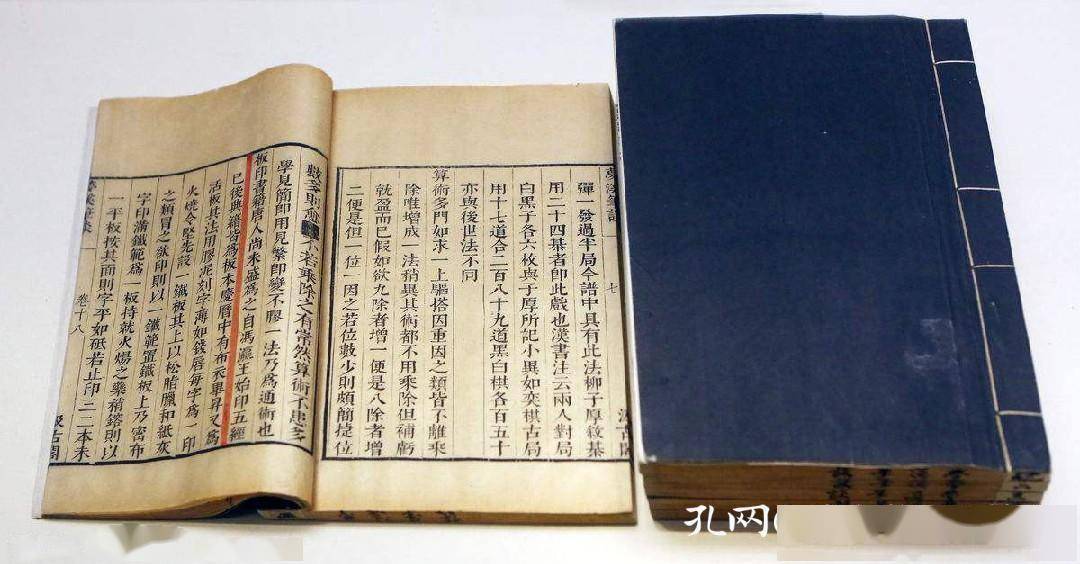 夢溪筆談 七
彈一發過半局今譜中具有此法柳子厚敘棊
用二十四棊者即此戲也漢書注云兩人對局
白黑子各六枚與子厚所記小異如奕棋古局
用十七道合二百八十九道黑白棋各百五十
亦與後世法不同
算術多門如求一上驅搭因重因之類皆不離乘
除唯增成一法稍異其術都不用乘除但補虧
就盈而已假如欲九除者增一便是八除者增
二便是但一位一因之若位數少則頗簡捷位
數多則愈不若乘除之有常然算術不患多
學見簡即用見繁即變不膠一法乃爲通術也
板印書籍唐人尚未盛爲之自馮瀛王始印五經
已後典籍皆爲板本慶曆中有布衣畢昇又爲
活板其法用膠泥刻字薄如錢唇每字爲一印
火燒令堅先設一鐵板其上以松脂臘和紙灰
之類冒之欲印則以一鐵範置鐵板上乃密布
字印滿鐵範爲一板持就火煬之藥稍鎔則以
一平板按其面則字平如砥若止印二三本未
卷十八 汲古閣
孔网